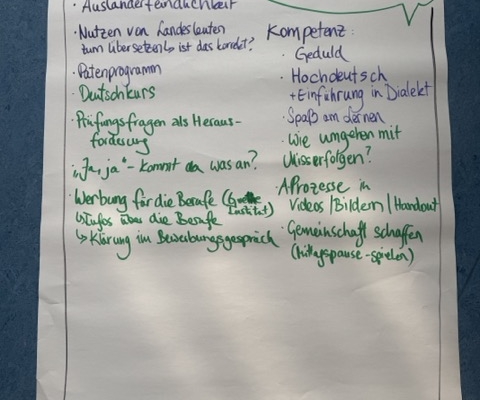 · Ausländerfeindlichkeit
· Nutzen von Landesleuten
zum Übersetzen ↳ ist das korrekt?
· Patenprogramm
· Deutschkurs
· Prüfungsfragen als Heraus-
forderung
· „Ja, ja“ - kommt da was an?
· Werbung für die Berufe (Goethe
Institut)
↳ Infos über die Berufe
↳ Klärung im Bewerbungsgespräch
Kompetenz:
· Geduld
· Hochdeutsch
+ Einführung in Dialekt
· Spaß am Lernen
· Wie umgehen mit
Misserfolgen?
· Prozesse in
Videos / Bildern / Handout
· Gemeinschaft schaffen
(Mittagspause - spielen)